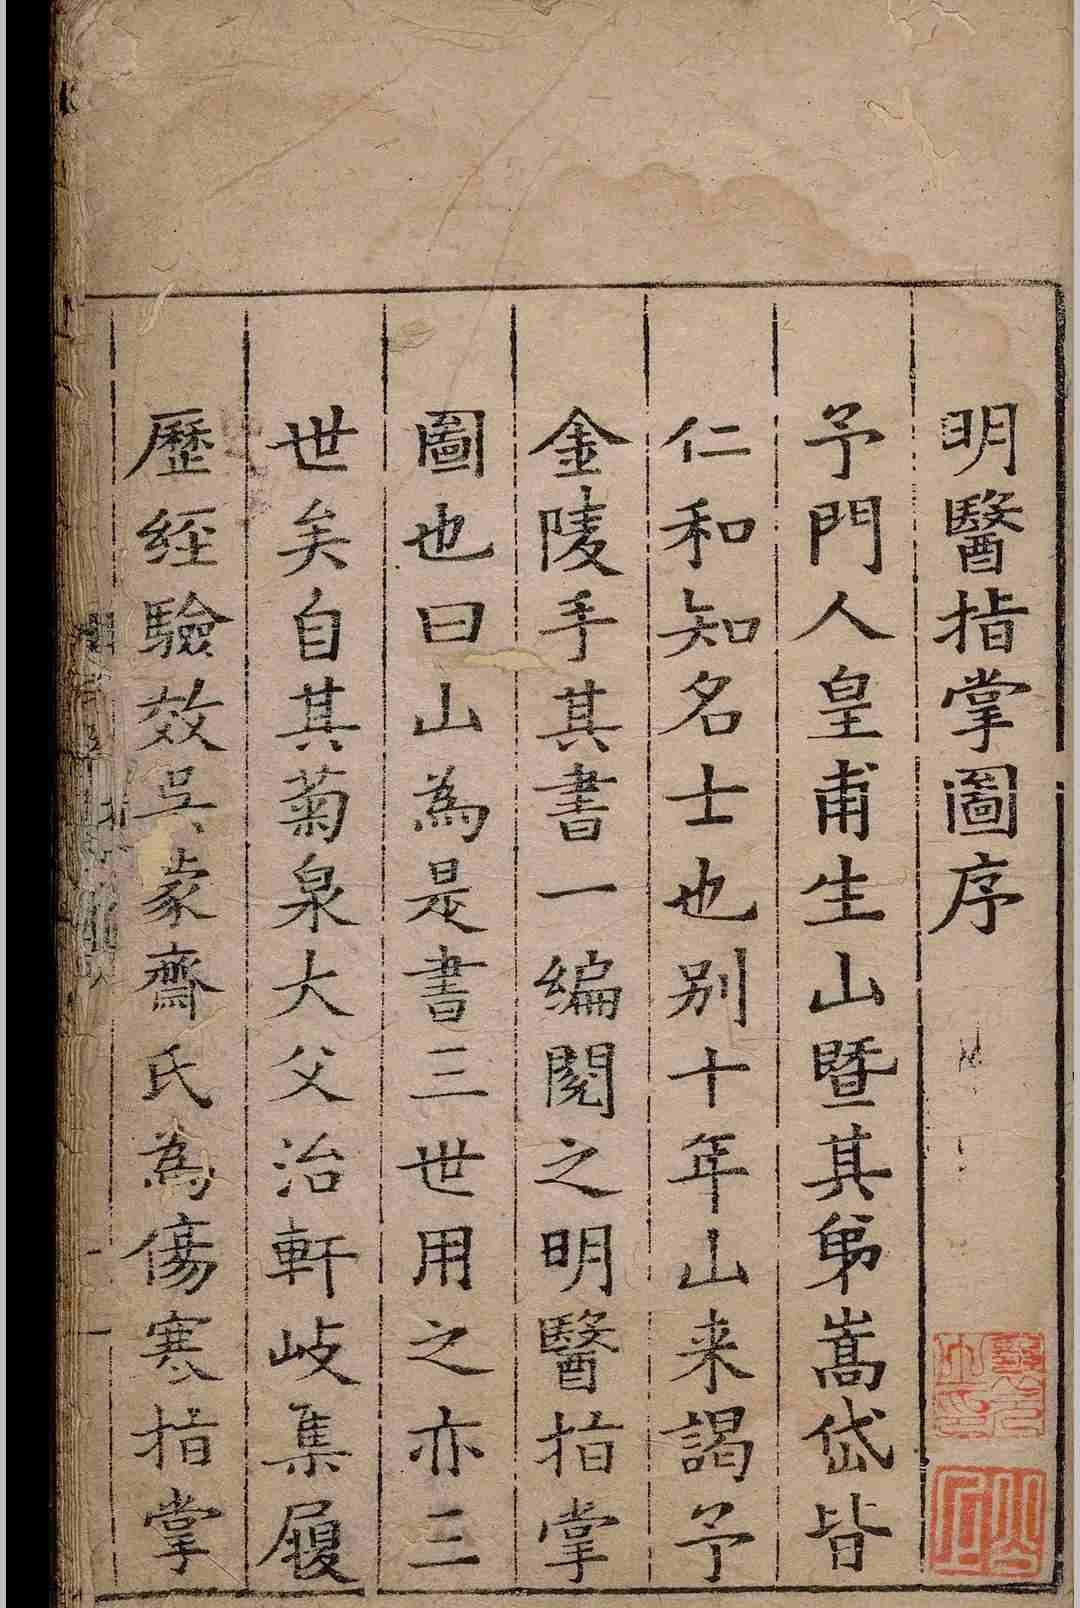 明醫指掌圖序
予門人皇甫生山曁其弟嵩岱皆
仁和知名士也别十年山来謁予
金陵手其書一編閱之明醫指掌
圖也曰山為是書三世用之亦三
世矣自其菊泉大父治軒岐集履
歷經驗效吳蒙齋氏為傷寒指掌